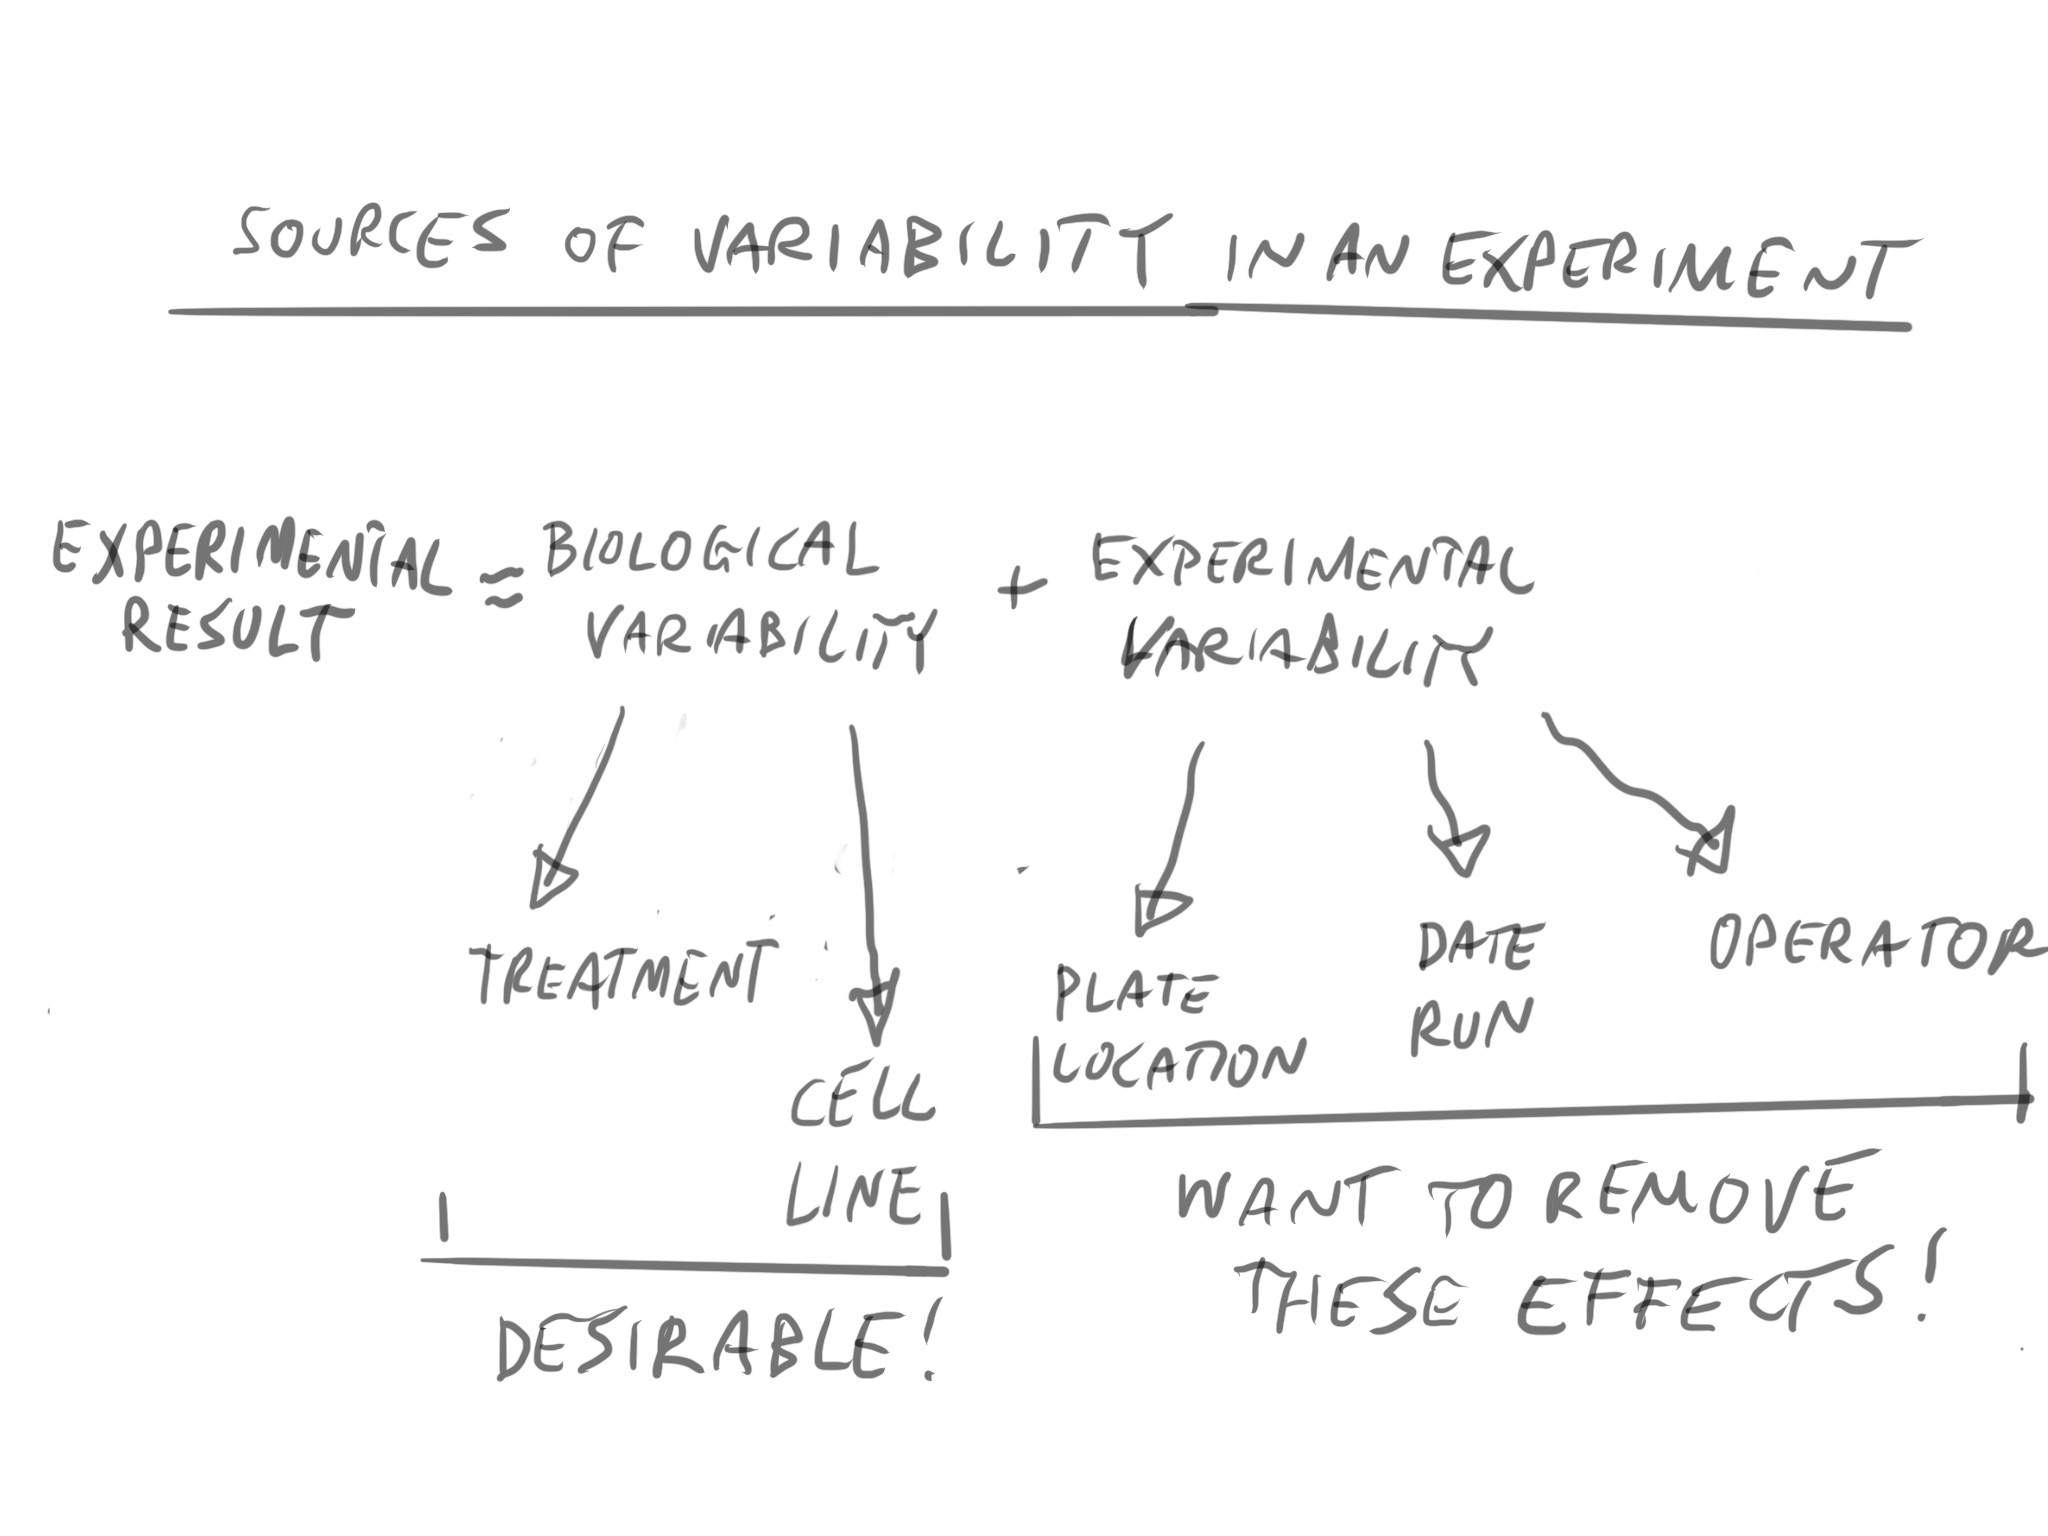 SOURCES OF VARIABILITY IN AN EXPERIMENT
EXPERIMENTAL
RESULT
≈
BIOLOGICAL
VARIABILITY
+
EXPERIMENTAL
VARIABILITY
TREATMENT
CELL
LINE
PLATE
LOCATION
DATE
RUN
OPERATOR
DESIRABLE!
WANT TO REMOVE
THESE EFFECTS!